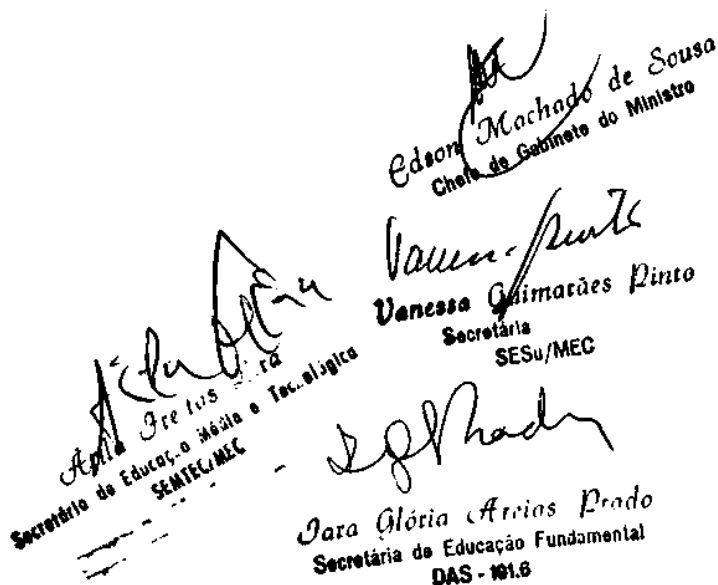 Edson Machado de Sousa
Chefe de Gabinete do Ministro
Vanessa Guimarães Pinto
Secretária
SESu/MEC
Freitas
Secretário de Educação Média e Tecnológica
SEMTEC/MEC
Iara Glória Areias Prado
Secretária de Educação Fundamental
DAS - 101.6